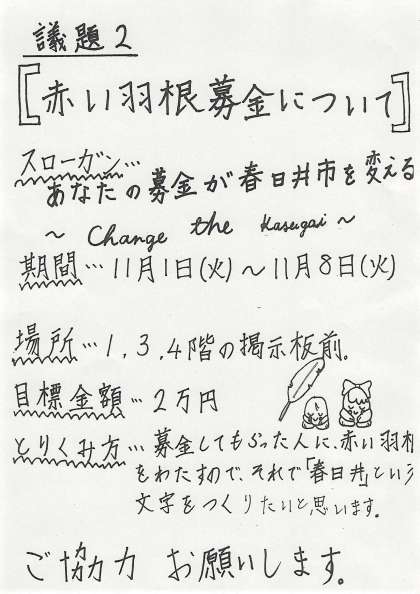 議題2
[赤い羽根募金について]
スローガン…
あなたの募金が春日井市を変える
～ Change the Kasugai ～
期間…11月1日(火)～11月8日(火)
場所…1,3,4階の掲示板前。
目標金額…2万円
とりくみ方…募金してもらった人に、赤い羽根
をわたすので、それで「春日井」という
文字をつくりたいと思います。
ご協力 お願いします。